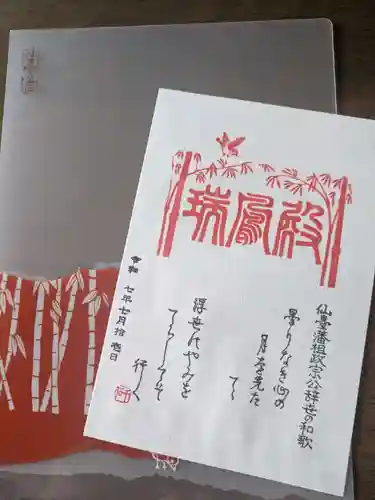 瑞鳳殿
仙臺藩祖政宗公辞世の和歌
曇りなき心の
月を先た
てゝ
浮世のやみを
てらしてそ
行く
令和七年七月拾壱日